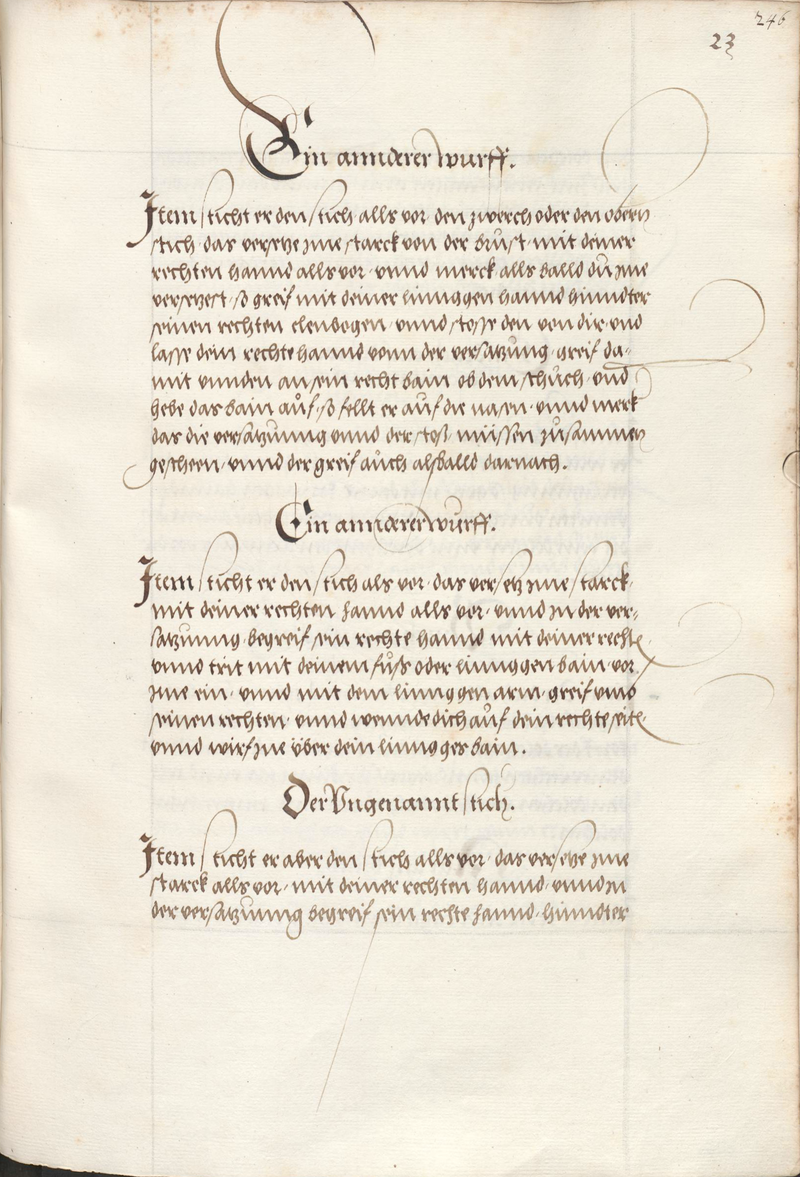 246
23
Ein annderer wurff.
Item sticht er den stich alls vor den zwerch oder den obern
stich das versetze jme starck von der brust mit deiner
rechten hannd alls vor vnnd merck alls balld du jme
versetzest so greif mit deiner linnggen hannd hinndter
seinen rechten elenbogen vnnd stosse den von dir vnd
lasse dein rechte hannd vonn der versatzung greif da-
mit vnnden an sein recht bain ob dem schuch vnd
hebe das bain auf so fellt er auf die nasen vnnd merk
das die versatzunng vnnd der stoß müssen zusammen
gescheen vnnd der greif auch alßballd darnach.
Ein annderer wurff.
Item sticht er den stich als vor das versetz jme starck
mit deiner rechten hannd alls vor vnnd in der ver-
satzunng begreif sein rechte hannd mit deiner rechten
vnnd trit mit deinem fuß oder linnggen bain vor
jme ein vnnd mit dem linnggen arm greif vmb
seinen rechten vnnd wennde dich auf dein rechte seiten
vnnd wirf jne über dein linngges bain.
Der Vngenannt stich.
Item sticht er aber den stich alls vor das versetze jme
starck alls vor mit deiner rechten hannd vnnd in
der versatzunng begreif sein rechte hannd hinndter